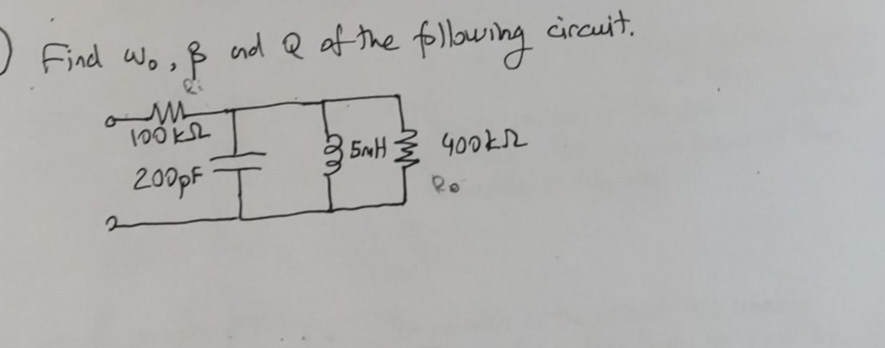 ) Find ω₀, β and Q of the following circuit.
Ri
100kΩ
200pF
5mH
400kΩ
Ro